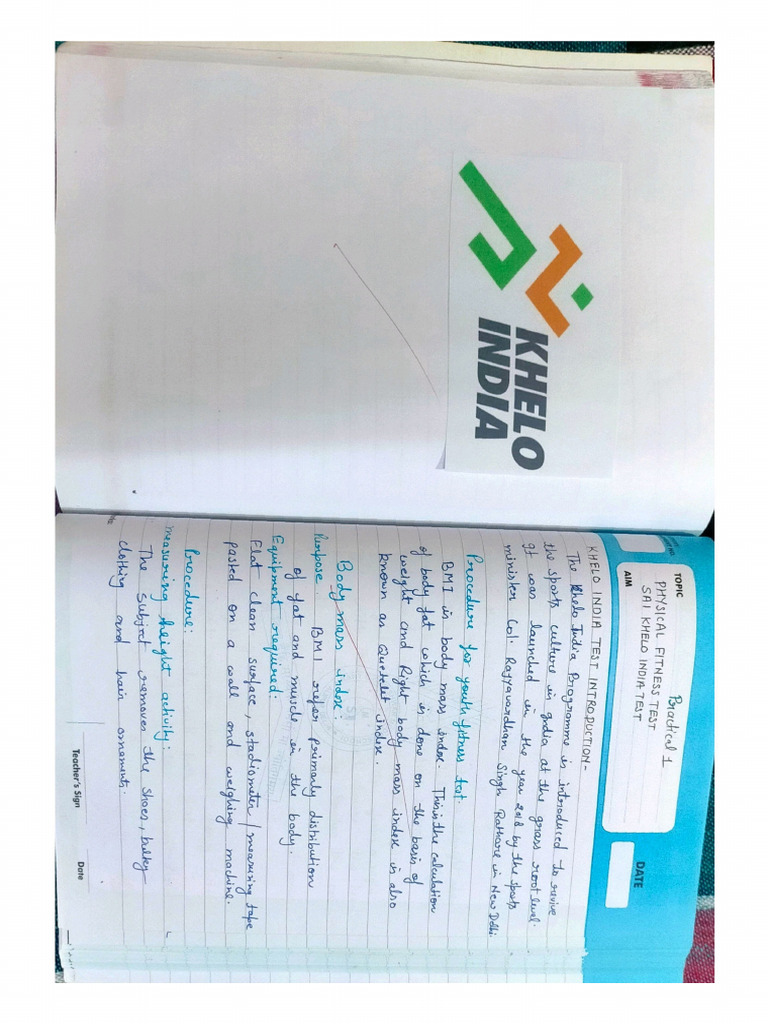 KHELO
INDIA
Practical 1
TOPIC
PHYSICAL FITNESS TEST
SAI KHELO INDIA TEST
AIM
DATE
KHELO INDIA TEST INTRODUCTION-
The Khelo India Programme is introduced to revive
the sports culture in India at the grass root level.
It was launched in the year 2018 by the sports
minister Col. Rajyavardhan Singh Rathore in New Delhi.
Procedure for youth fitness test.
BMI is body mass index. This is the calculation
of body fat which is done on the basis of
weight and Right body mass index is also
known as Quetelet index.
Body mass index:
Purpose. BMI refer primarly distribution
of fat and muscle in the body.
Equipment required:
Flat clean surface, stadiometer/measuring tape
pasted on a wall and weighing machine.
Procedure:
measuring height activity:
The Subject removes the shoes, bulky
clothing and hair ornaments.
Teacher's Sign
Date